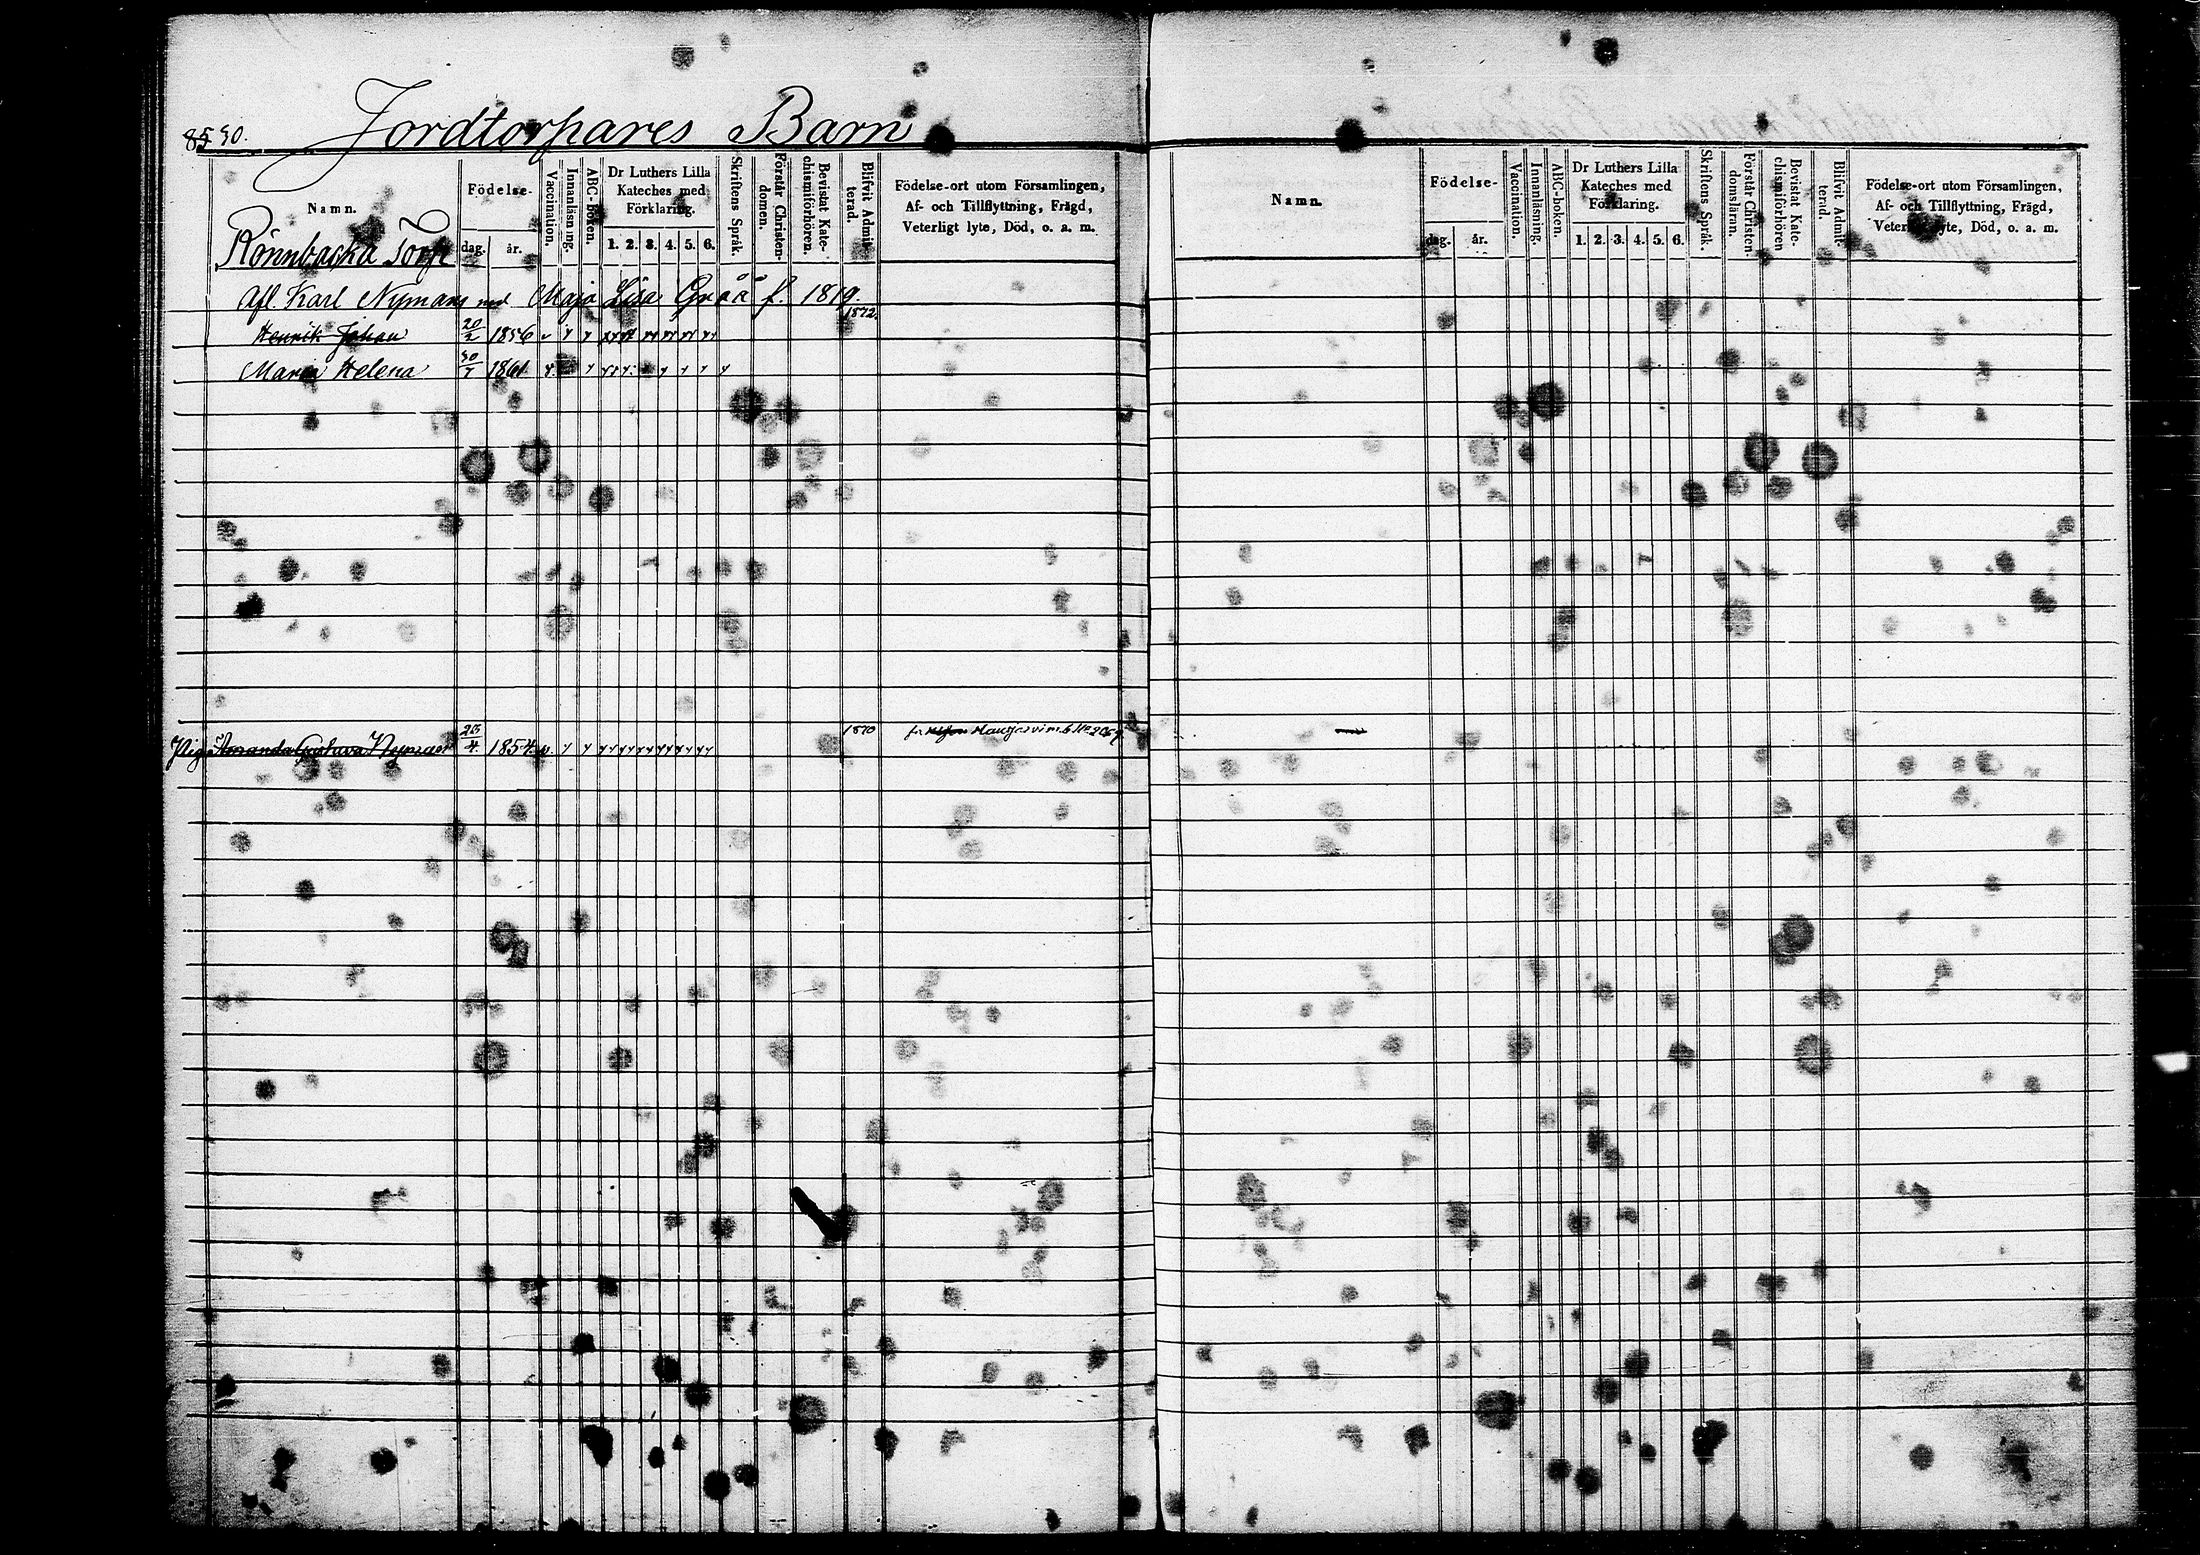 90. Jordtorpares Barn
Namn.
Födelse-
dag. år.
Vaccination.
Innanläsning.
ABC-Boken.
Dr Luthers Lilla
Kateches med
Förklaring.
1. 2. 3. 4. 5. 6.
Skriftens Språk.
Förstår Christen-
domen.
Bevistat Kate-
chismiförhören.
Blifvit Admit-
terad.
Födelse-ort utom Församlingen,
Af- och Tillflyttning, Frägd,
Veterligt lyte, Död, o. a. m.
Rönnbacka Torp
Afl. Karl Nymans med Maja Lisa Gråå f. 1819.
Henrik Johan 20/2 1856 1872.
Maria Helena 30/7 1861
Piga Amanda Gustava Nyman 23/4 1854 1870
Namn.
Födelse-
dag. år.
Vaccination.
Innanläsning.
ABC-boken.
Dr Luthers Lilla
Kateches med
Förklaring.
1. 2. 3. 4. 5. 6.
Skriftens Språk.
Förstår Christen-
domsläran.
Bevistat Kate-
chismiförhören
Blifvit Admit-
terad.
Födelse-ort utom Församlingen,
Af- och Tillflyttning, Frägd,
Veterligt lyte, Död, o. a. m.